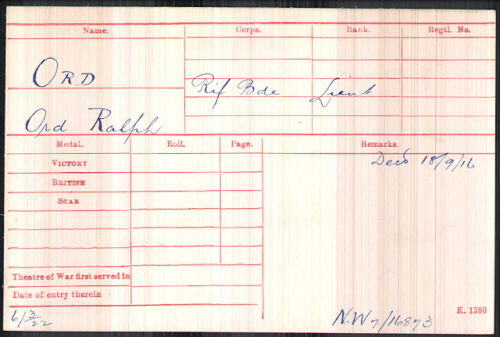 Name. Corps. Rank. Regtl. No.
ORD
Rif Bde Lieut
Ord Ralph
Medal. Roll. Page. Remarks.
VICTORY Dec'd 18/9/16
BRITISH
STAR
Theatre of War first served in
Date of entry therein K. 1380
6/3/22 N.W 7/16873